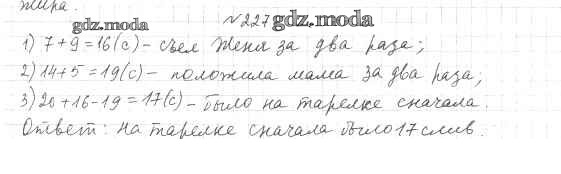 жира.
gdz.moda
№227 gdz.moda
1) 7+9=16(с) – съел Женя за два раза;
2) 14+5=19(с) – положила мама за два раза;
3) 20+16-19=17(с) – было на тарелке сначала.
Ответ: на тарелке сначала было 17 слив.